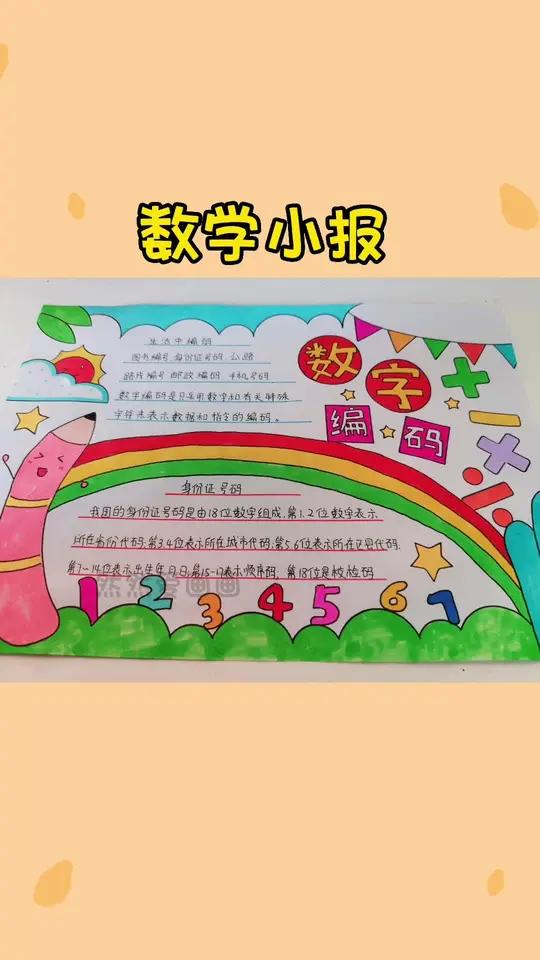 数学小报
数字
编码
生活中编码
图书编号 身份证号码 公路
路线编号 邮政编码 手机号码
数字编码是只采用数字和有关特殊
字符来表示数据和指令的编码。
身份证号码
我国的身份证号码是由18位数字组成,第1.2位数字表示
所在省份代码;第3.4位表示所在城市代码;第5.6位表示所在区县代码;
第7~14位表示出生年月日;第15-17表示顺序码,第18位是校检码
然然爱画画
1 2 3 4 5 6 7